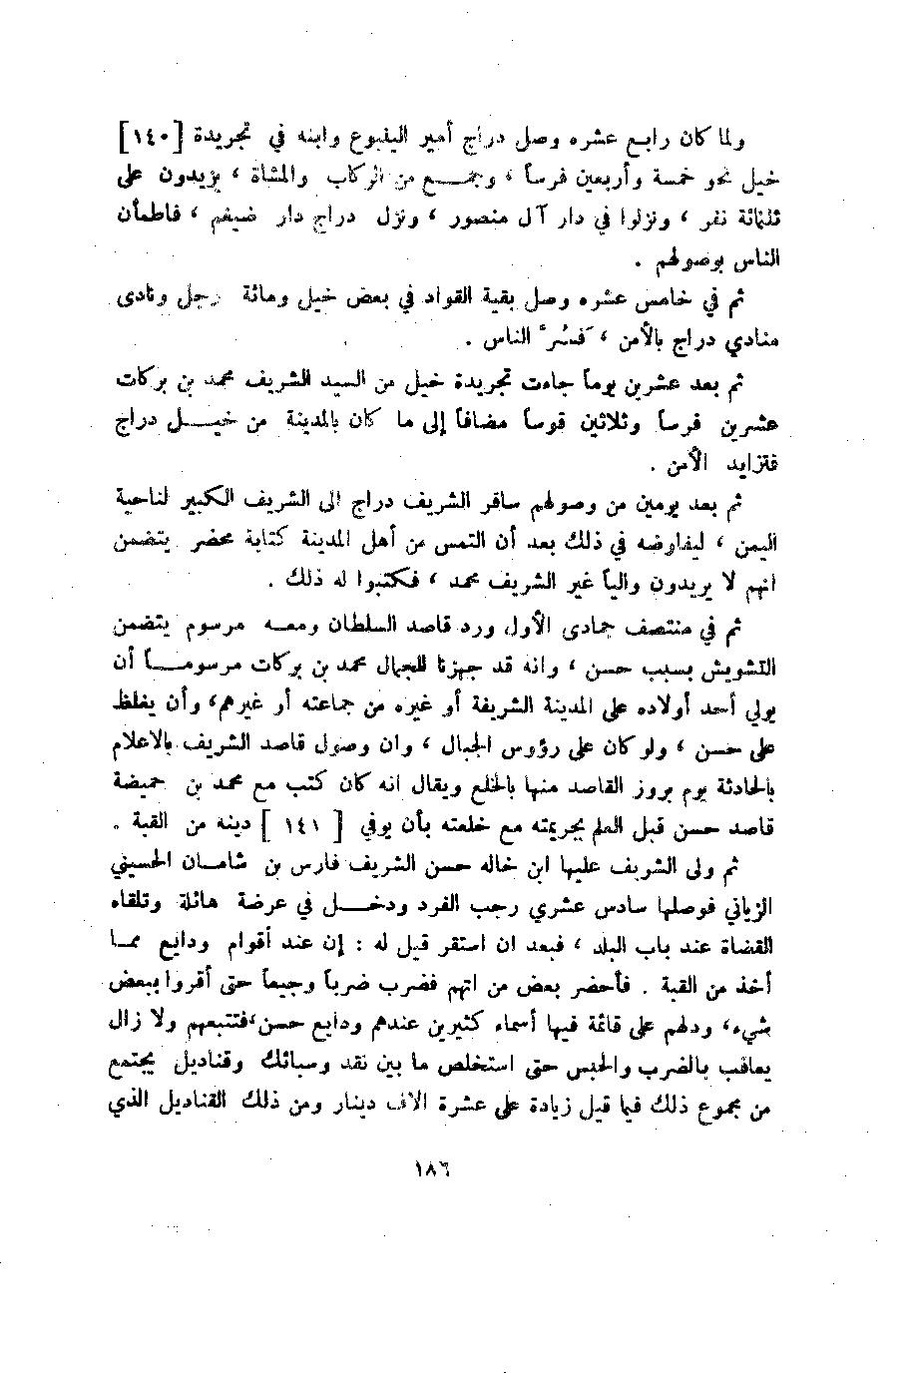 ولما كان رابع عشره وصل دراج أمير الينبوع وابنه في تجريدة [١٤٠]
خيل نحو خمسة وأربعين فرساً ، وجمـــع من الركاب والمشاة ، يزيدون على
ثلثمائة نفر ، ونزلوا في دار آل منصور ، ونزل دراج دار ضيغم ، فاطمأن
الناس بوصولهم .
ثم في خامس عشره وصل بقية القواد في بعض خيل ومائة رجل ونادى
منادي دراج بالأمن ، فَسُرَّ الناس .
ثم بعد عشرين يوماً جاءت تجريدة خيل من السيد الشريف محمد بن بركات
عشرين فرساً وثلاثين قوساً مضافاً إلى ما كان بالمدينة من خيـــل دراج
فتزايد الأمن .
ثم بعد يومين من وصولهم سافر الشريف دراج الى الشريف الكبير لناحية
اليمن ، ليفاوضه في ذلك بعد أن التمس من أهل المدينة كتابة محضر يتضمن
انهم لا يريدون والياً غير الشريف محمد ، فكتبوا له ذلك .
ثم في منتصف جمادى الأول ورد قاصد السلطان ومعـــه مرسوم يتضمن
التشويش بسبب حسن ، وانه قد جهزنا للجمال محمد بن بركات مرسومـــاً أن
يولي أحد أولاده على المدينة الشريفة أو غيره من جماعته أو غيرهم، وأن يغلظ
على حسن ، ولو كان على رؤوس الجبال ، وان وصول قاصد الشريف بالاعلام
بالحادثة يوم بروز القاصد منها بالخلع ويقال انه كان كتب مع محمد بن حميضة
قاصد حسن قبل العلم بجريمته مع خلعته بأن يوفي [ ١٤١ ] دينه من القبة .
ثم ولى الشريف عليها ابن خاله حسن الشريف فارس بن شامـــان الحسيني
الزياني فوصلها سادس عشري رجب الفرد ودخـــل في عرضة هائلة وتلقاه
القضاة عند باب البلد ، فبعد ان استقر قيل له : إن عند أقوام ودايع ممـــا
أخذ من القبة . فأحضر بعض من اتهم فضرب ضرباً وجيعاً حتى أقروا ببعض
شيء، ودلهم على قائمة فيها أسماء كثيرين عندهم ودايع حسن،فتتبعهم ولا زال
يعاقب بالضرب والحبس حتى استخلص ما بين نقد وسبائك وقناديل يجتمع
من مجموع ذلك فيما قيل زيادة على عشرة الاف دينار ومن ذلك القناديل الذي
١٨٦